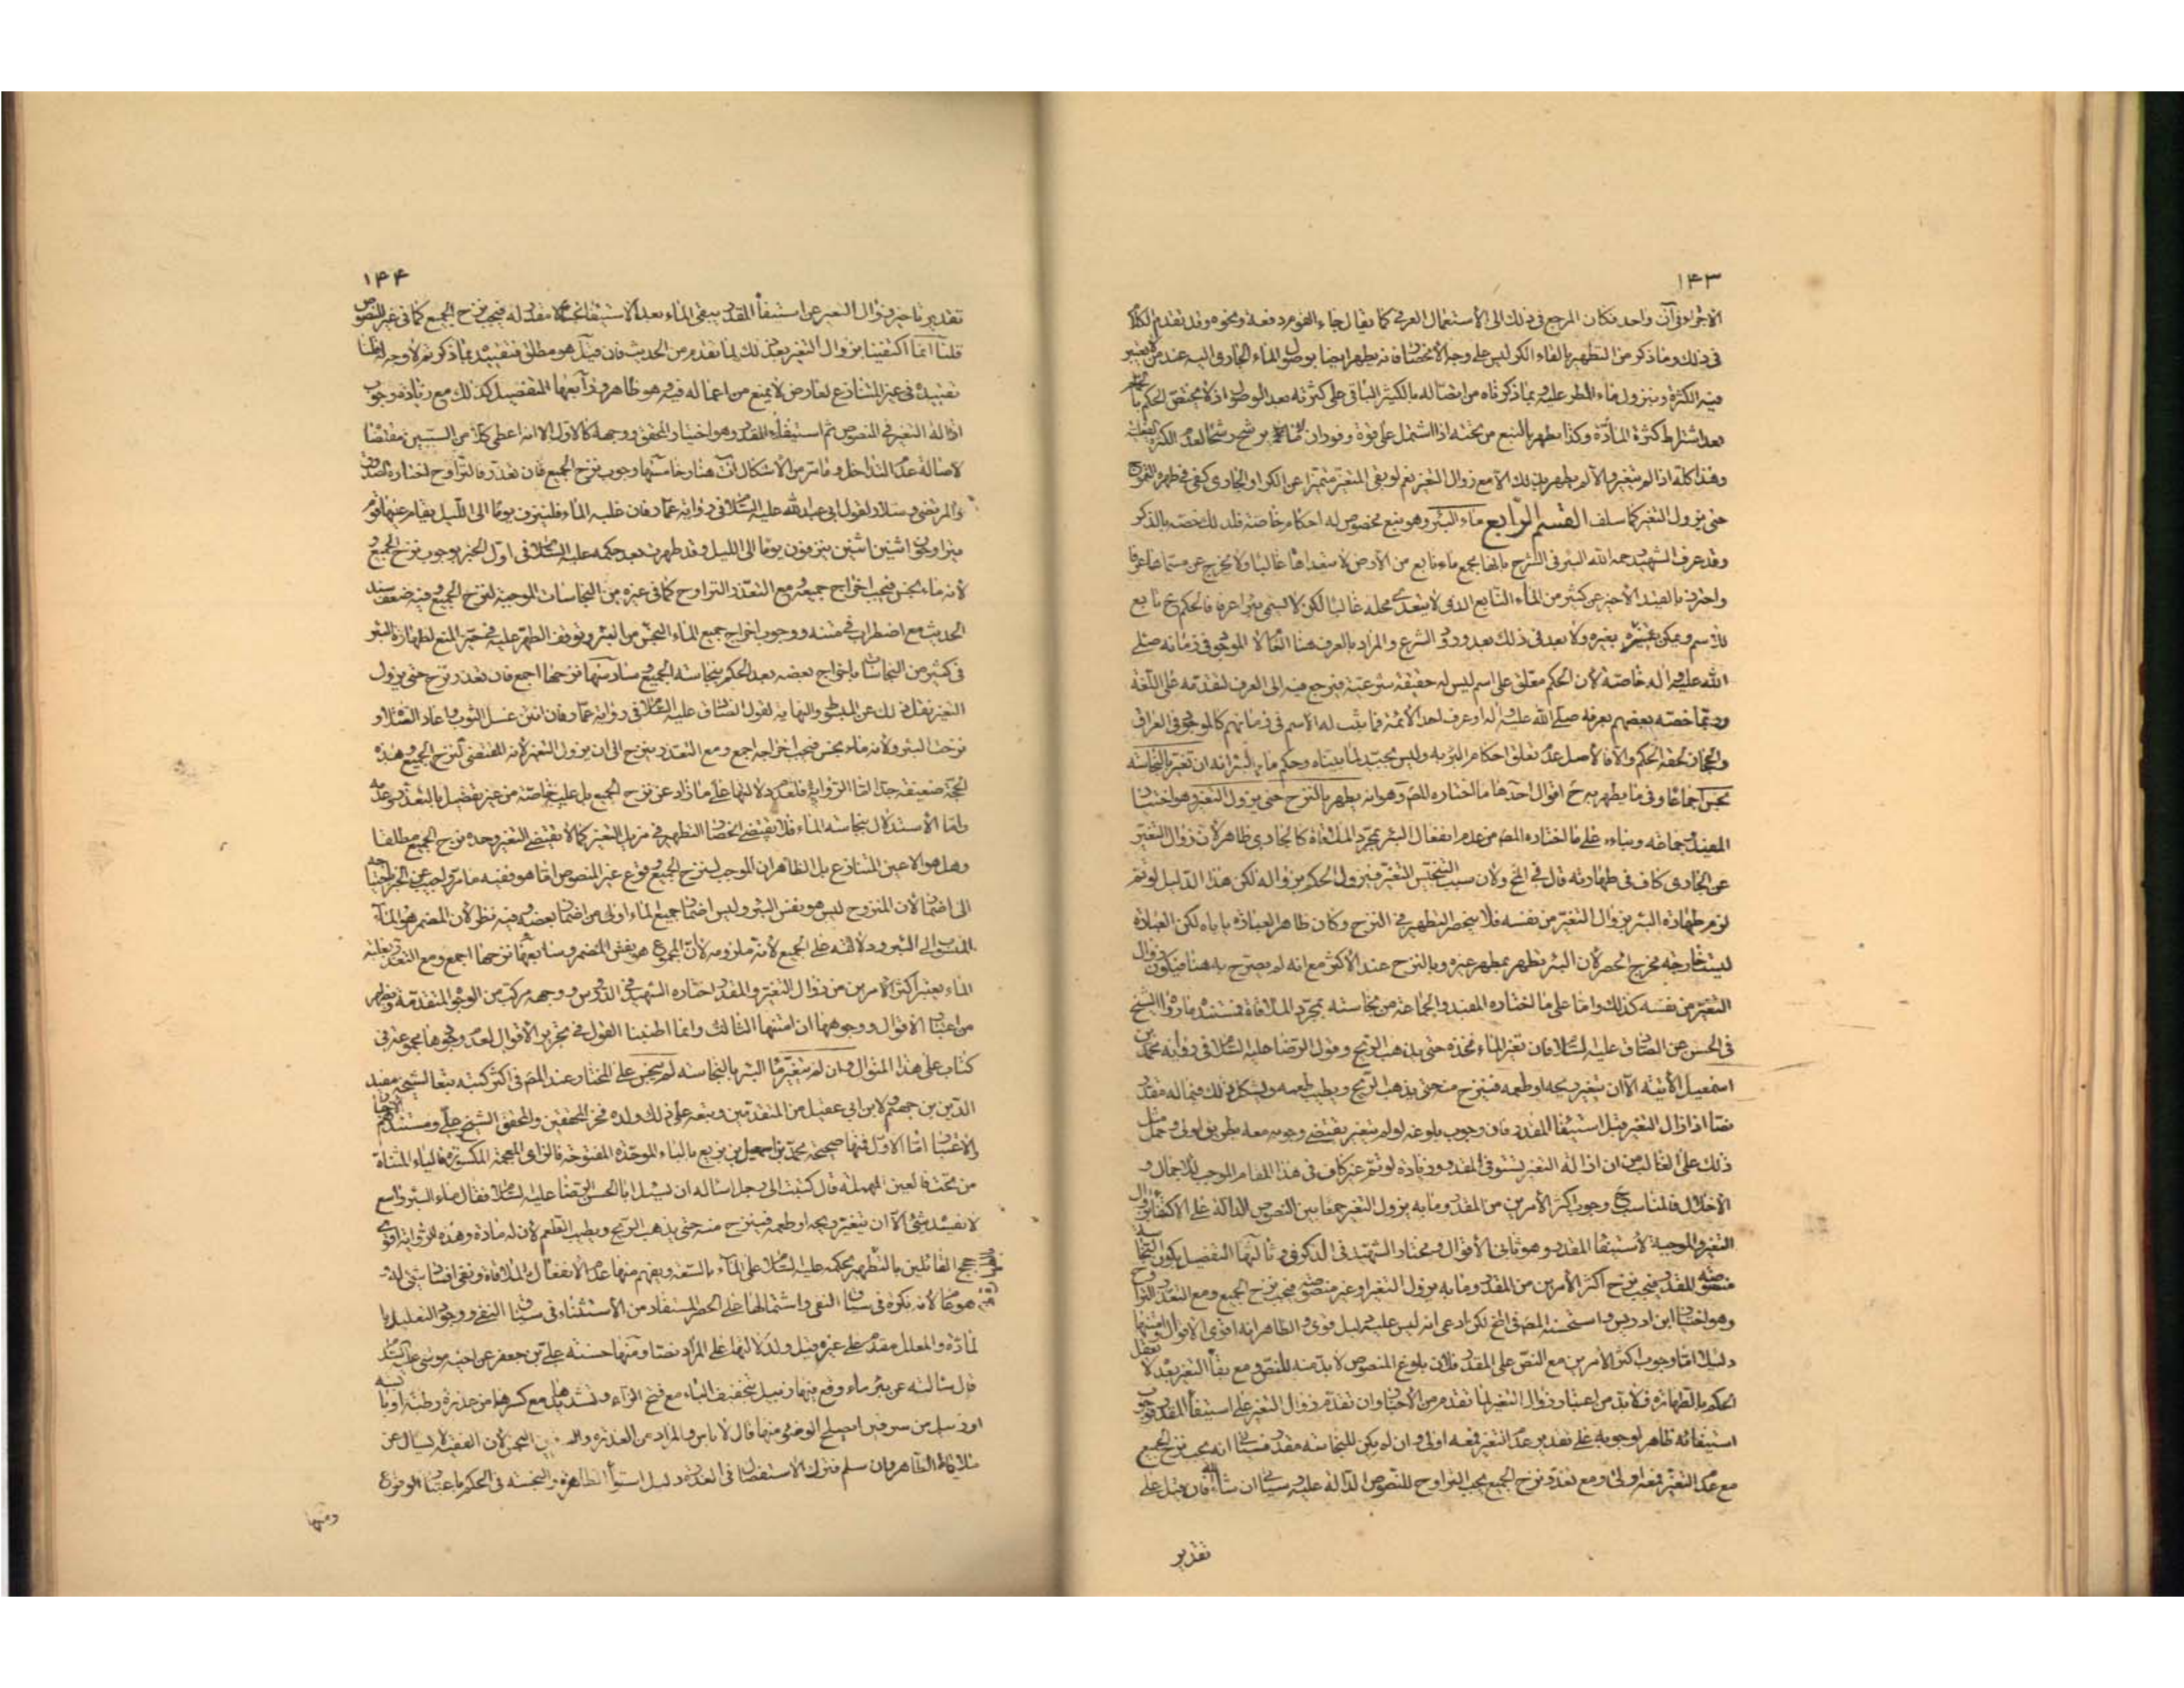 ١٤٣
الاجزاء في آن واحد فكان المرجع في ذلك الى الاستعمال العرفي كما يقال جاء القوم دفعة ونحوه وقد تقدم الكلام
في ذلك وما ذكر من التطهير بالقاء الكر ليس على وجه الانحصار فانه يطهر ايضا بوصول الماء الجاري اليه عند من لا يعتبر
فيه الكثرة وبنزول ماء المطر عليه وبما ذكرناه من اتصاله بالكثير الباقي على كثرته بعد الوصول اذ لا يختص الحكم
بعد اشتراط كثرة المادة وكذا يطهر بالنبع من تحته اذا اشتمل على قوة وفوران لا ما يرشح رشحا لعدم الكثرة
وهذا كله اذا لم يتغير والا لم يطهر بذلك الا مع زوال التغير نعم لو بقي المتغير متميزا عن الكر او الجاري كفى في طهره التموج
حتى يزول التغير كما سلف القسم الرابع ماء البئر وهو نبع مخصوص له احكام خاصة فلذلك خصه بالذكر
وقد عرف الشهيد رحمه الله البئر في الشرح بانها مجمع ماء نابع من الارض لا يتعداها غالبا ولا يخرج عن مسماها عرفا
واحترز بالقيد الاخير عن كثير من الماء النابع الذي لا يتعدى محله غالبا لكن لا يسمى بئرا عرفا فالحكم ح تابع
للاسم ويمكن تغيره بغيره ولا بعد في ذلك بعد ورود الشرع والمراد بالعرف هنا العام لا الموجود في زمانه صلى
الله عليه واله خاصة لان الحكم معلق على اسم ليس له حقيقة شرعية فيرجع فيه الى العرف لتقدمه على اللغة
وربما خصه بعضهم بعرفه صلى الله عليه واله او عرف احد الائمة فما ثبت له الاسم في زمانهم كالموجود في العراق
والحجاز لحقه الحكم والا فالاصل عدم تعلق احكام البئر به وليس بجيد لما بيناه وحكم ماء البئر انه ان تغير بالنجاسة
نجس اجماعا وفي ما يطهر به ح اقوال احدها ما اختاره المص وهو انه يطهر بالنزح حتى يزول التغير وهو اختيار
المفيد وجماعة وبناءه على ما اختاره المص من عدم انفعال البئر بمجرد الملاقاة كالجاري ظاهر لان زوال التغير
عن الجاري كاف في طهارته قال في الخ ولان سبب التنجس التغير فيزول الحكم بزواله لكن هذا الدليل لو تم
لزم طهارة البئر بزوال التغير من نفسه فلا ينحصر التطهير في النزح وكان ظاهر العبارة ياباه لكن العبارة
ليست خارجة مخرج الحصر لان البئر تطهر بمطهر غيره وبالنزح عند الاكثر مع انه لم يصرح به هنا فيكون زوال
التغير من نفسه كذلك واما على ما اختاره المفيد والجماعة من نجاسته بمجرد الملاقاة فمستنده ما رواه الشيخ
في الحسن عن الصادق عليه السلام فان تغير الماء فخذه حتى يذهب الريح وقول الرضا عليه السلام في رواية محمد بن
اسمعيل الاتية الا ان يتغير ريحه او طعمه فينزح منه حتى يذهب الريح ويطيب طعمه ويشكل ذلك فيما له مقدر
نصا اذا زال التغير قبل استيفاء المقدر فان وجوب بلوغه لو لم يتغير يقتضي وجوبه معه بطريق اولى وحمل
ذلك على الغالب من ان ازالة التغير تستوفي المقدر وزيادة لو تم غير كاف في هذا المقام الموجب للاجمال و
الاخلال فالمناسب ح وجوب اكثر الامرين من المقدر وما به يزول التغير جمعا بين النصوص الدالة على الاكتفاء بزوال
التغير والموجبة لاستيفاء المقدر وهو ثاني الاقوال ومختار الشهيد في الذكرى وثالثها التفصيل بكون النجاسة
منصوصة المقدر فيجب نزح اكثر الامرين من المقدر وما به يزول التغير او غير منصوصة فيجب نزح الجميع ومع التعذر التراوح
وهو اختيار ابن ادريس واستحسنه المص في الخ لكن ادعى انه ليس عليه دليل قوي والظاهر انه اقوى الاقوال وامتنها
دليلا اما وجوب اكثر الامرين مع النص على المقدر فلان بلوغ المنصوص لا بد منه للنص ومع بقاء التغير بعد لا يعقل
الحكم بالطهارة فلا بد من اعتبار زوال التغير لما تقدم من الاخبار وان تقدم زوال التغير على استيفاء المقدر فوجوب
استيفائه ظاهر لوجوبه على تقدير عدم التغير فمعه اولى وان لم يكن للنجاسة مقدر فسيأتي انه يجب نزح الجميع
مع عدم التغير فمعه اولى ومع تعذر نزح الجميع يجب التراوح للنصوص الدالة عليه وسياتي ان شاء الله فان قيل على
تقدير
١٤٤
تقدير تاخير زوال التغير عن استيفاء المقدر يبقى الماء بعد الاستيفاء نجسا لا مقدر له فيجب نزح الجميع كما في غير المنصوص
قلنا انما اكتفينا بزوال التغير بعد ذلك لما تقدم من الحديث فان قيل هو مطلق فتقييده بما ذكرتم لا وجه له قلنا
تقييده في غير المتنازع لعارض لا يمنع من اعماله فيه وهو ظاهر ورابعها التفصيل كذلك مع زيادة وجوب
ازالة التغير في النصوص ثم استيفاء المقدر وهو اختيار المحقق ووجهه كالاول الا انه اعطى كلا من السببين مقتضاه
لاصالة عدم التداخل وما مر من الاشكال ات هنا وخامسها وجوب نزح الجميع فان تعذر فالتراوح اختاره الصدوق
والمرتضى وسلار لقول ابي عبد الله عليه السلام في رواية عمار فان غلب الماء فلينزف يوما الى الليل يقام عليها قوم
يتراوحون اثنين اثنين ينزفون يوما الى الليل وقد طهرت بعد حكمه عليه السلام في اول الخبر بوجوب نزح الجميع و
لانه ماء نجس فيجب اخراج جميعه ومع التعذر التراوح كما في غيره من النجاسات الموجبة لنزح الجميع وفيه ضعف سند
الحديث مع اضطراب في متنه ووجوب اخراج جميع الماء النجس من البئر وتوقف الطهر عليه في حيز المنع لطهارة البئر
في كثير من النجاسات باخراج بعضه بعد الحكم بنجاسة الجميع وسادسها نزحها اجمع فان تعذر نزح حتى يزول
التغير نقل ذلك عن المبسوط والنهاية لقول الصادق عليه السلام في رواية عمار فان انتن غسل الثوب واعاد الصلاة و
نزحت البئر ولانه ماء نجس فيجب اخراجه اجمع ومع التعذر ينزح الى ان يزول التغير لانه المقتضي لنزح الجميع وهذه
الحجة ضعيفة جدا اما الرواية فلعدم دلالتها على ما زاد عن نزح الجميع بل عليه خاصة من غير تفصيل بالتعذر وعدمه
واما الاستدلال بنجاسة الماء فلا يقتضي انحصار التطهير في مزيل التغير كما لا يقتضي التغير وحده نزح الجميع مطلقا
وهل هو الا عين المتنازع بل الظاهر ان الموجب لنزح الجميع وقوع غير المنصوص اما هو ففيه ما مر واجيب عن الخبر باحتياجه
الى اضمار لان المنزوح ليس هو نفس البئر وليس اضمار جميع الماء اولى من اضمار بعضه وفيه نظر لان المضمر هو الماء
المنسوب الى البئر ودلالته على الجميع لانه ملزومه لان المجموع هو نفس المضمر وسابعها نزحها اجمع ومع التعذر لغلبة
الماء يعتبر اكثر الامرين من زوال التغير والمقدر اختاره الشهيد في الدروس ووجهه مركب من الوجوه المتقدمة ويظهر
من اعتبار الاقوال ووجوهها ان امتنها الثالث وانما اطنبنا القول في تحرير الاقوال لعدم وجودها مجموعة في
كتاب على هذا المنوال وان لم يتغير ماء البئر بالنجاسة لم ينجس على المختار عند المص في اكثر كتبه تبعا لشيخه مفيد
الدين بن جهم ولابن ابي عقيل من المتقدمين وتبعه على ذلك ولده فخر المحققين والمحقق الشيخ علي ومستندهم الاخبار
والاعتبار اما الاول فمنها صحيحة محمد بن اسمعيل بن بزيع بالباء الموحدة المفتوحة فالزاي المعجمة المكسورة فالياء المثناة
من تحت فالعين المهملة قال كتبت الى رجل اساله ان يسئل ابا الحسن الرضا عليه السلام فقال ماء البئر واسع
لا يفسده شئ الا ان يتغير ريحه او طعمه فينزح منه حتى يذهب الريح ويطيب الطعم لان له مادة وهذه الرواية اقوى
حجج القائلين بالتطهير بحكمه عليه السلام على الماء بالسعة ويفهم منها عدم الانفعال بالملاقاة ونفي افساد شئ له
عموما لانه نكرة في سياق النفي واشتمالها على الحصر المستفاد من الاستثناء في سياق النفي ووجود التعليل با
لمادة والمعلل مقدم على غيره قيل ولدلالتها على المراد نصا ومنها حسنة علي بن جعفر عن اخيه موسى عليه السلام
قال سالته عن بئر ماء وقع فيها زنبيل بتخفيف الباء مع فتح الزاء وتشديدها مع كسرها من عذرة رطبة او يابسة
او زنبيل من سرقين ايصلح الوضوء منها قال لا باس والمراد من العذرة والسرقين النجس لان الفقيه لا يسال عن
ملاقاة الطاهر وان سلم فترك الاستفصال في العذرة دليل استواء الطاهرة والنجسة في الحكم باعتبار الوقوع
ومنها